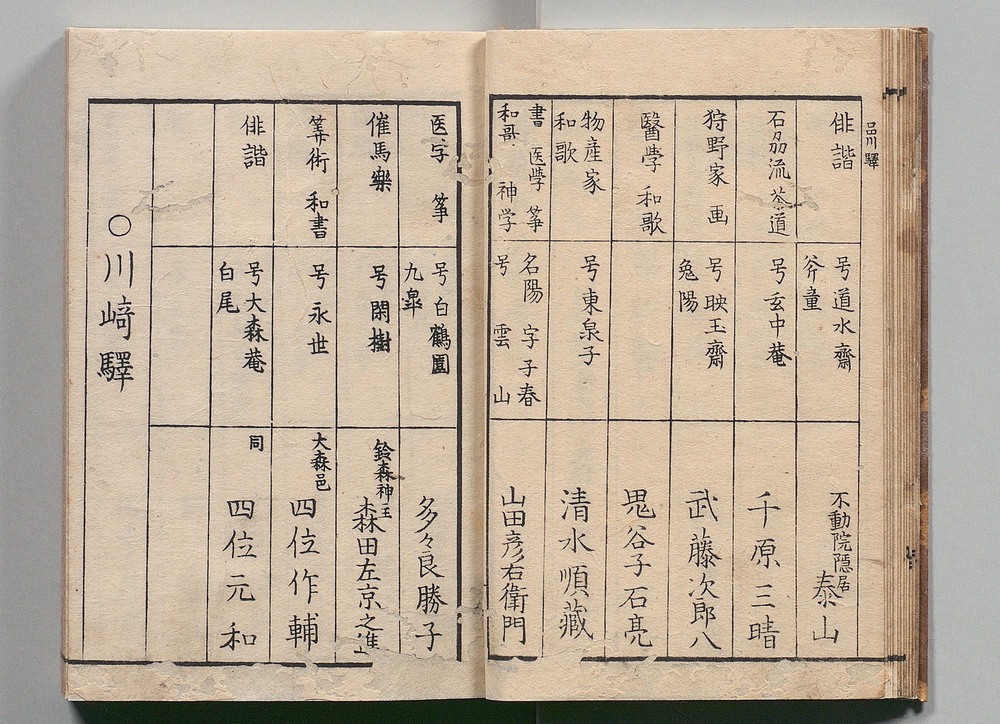 品川驛
俳諧
号道水齋
斧童
不動院隠居
泰山
石刕流茶道
号玄中菴
千原三晴
狩野家 画
号映玉齋
兔陽
武藤次郎八
醫学 和歌
谷子石亮
物産家
和歌
号東泉子
清水順藏
書 医学 筝
和哥 神学
名陽 字子春
号 雲山
山田彦右衛門
医字 筝
号白鶴園
九皐
多々良勝子
催馬樂
号閑樹
鈴森神主
森田左京之進
筭術 和書
号永世
大森邑
四位作輔
俳諧
号大森菴
白尾
同
四位元和
○川﨑驛